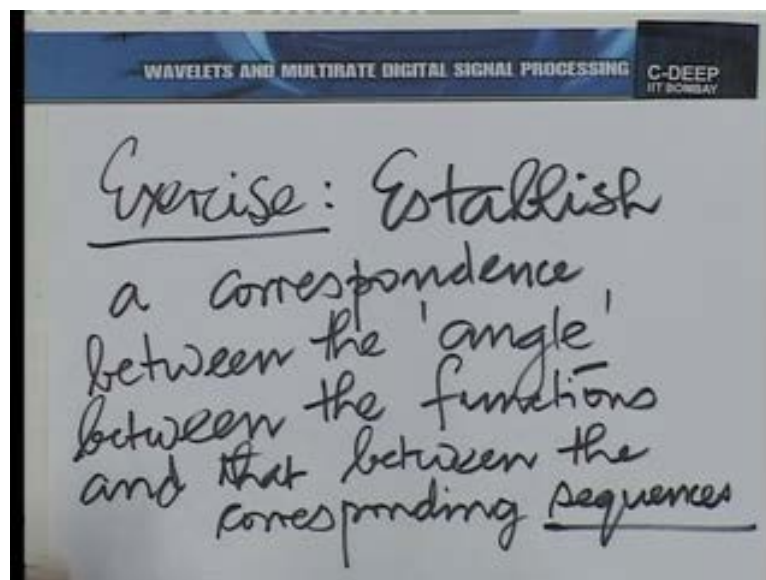 WAVELETS AND MULTIRATE DIGITAL SIGNAL PROCESSING
C-DEEP
IIT BOMBAY
Exercise: Establish
a correspondence
between the 'angle'
between the functions
and that between the
corresponding sequences